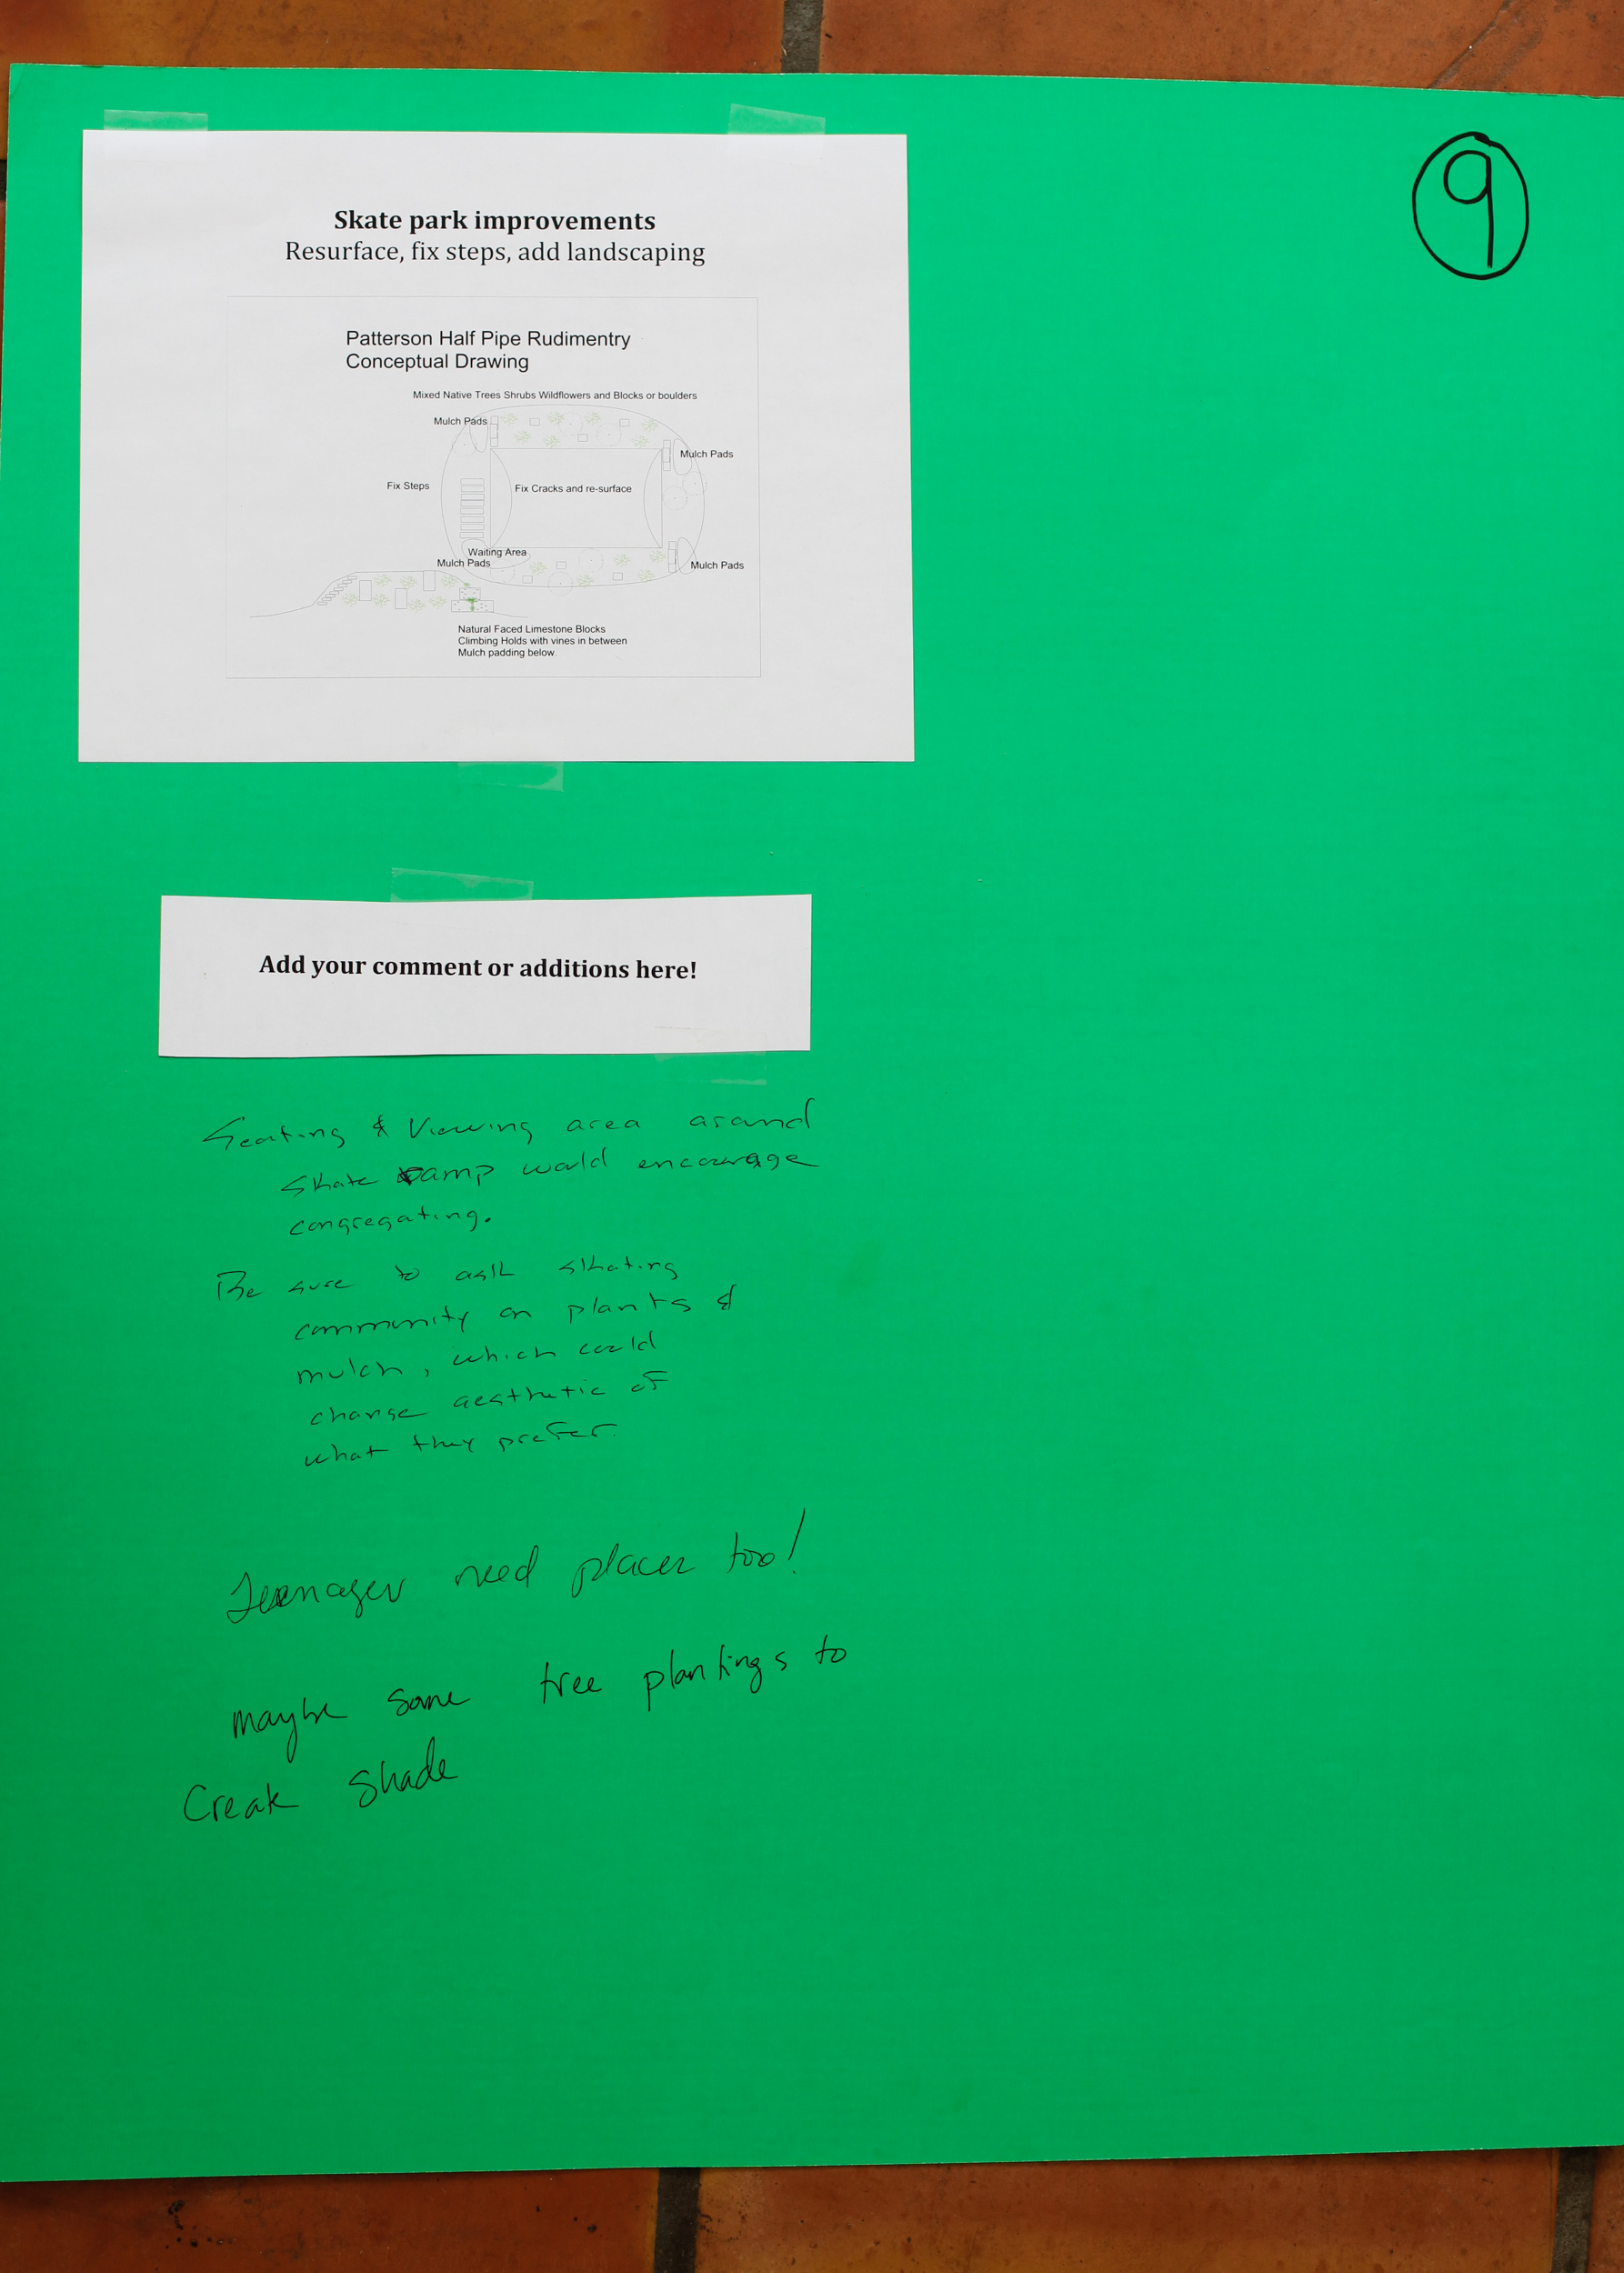 9
Skate park improvements
Resurface, fix steps, add landscaping
Patterson Half Pipe Rudimentry
Conceptual Drawing
Mixed Native Trees Shrubs Wildflowers and Blocks or boulders
Mulch Pads
Mulch Pads
Fix Steps
Fix Cracks and re-surface
Waiting Area
Mulch Pads
Mulch Pads
Natural Faced Limestone Blocks
Climbing Holds with vines in between
Mulch padding below.
Add your comment or additions here!
Seating & Viewing area around
skate ramp would encourage
congregating.
Be sure to ask skating
community on plants &
mulch, which could
change aesthetic of
what they prefer.
Teenagers need places too!
maybe some tree plantings to
Create Shade